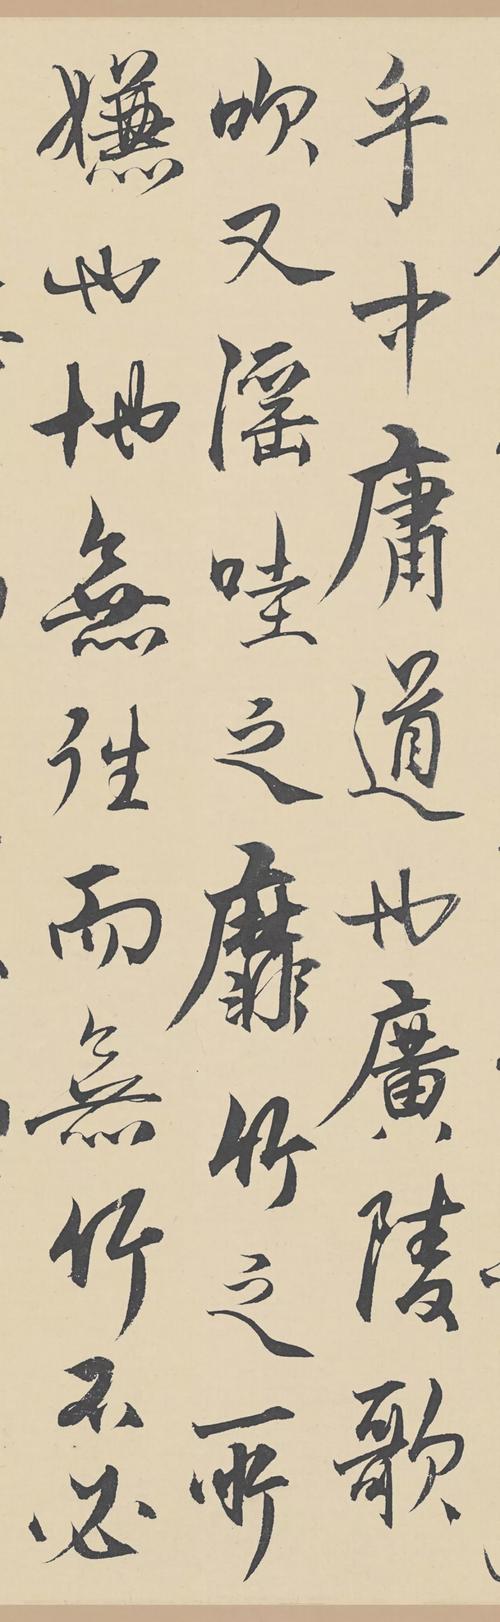 乎中庸道也廣陵歌
吹又淫哇之靡竹之所
嫌也地無往而無竹不必